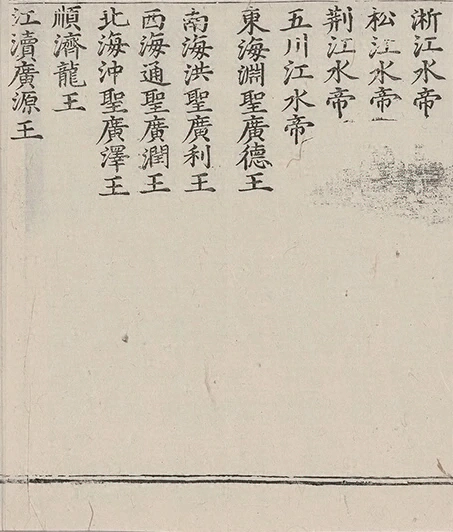 淅江水帝
松江水帝
荆江水帝
五川江水帝
東海淵聖廣德王
南海洪聖廣利王
西海通聖廣潤王
北海沖聖廣澤王
順濟龍王
江瀆廣源王